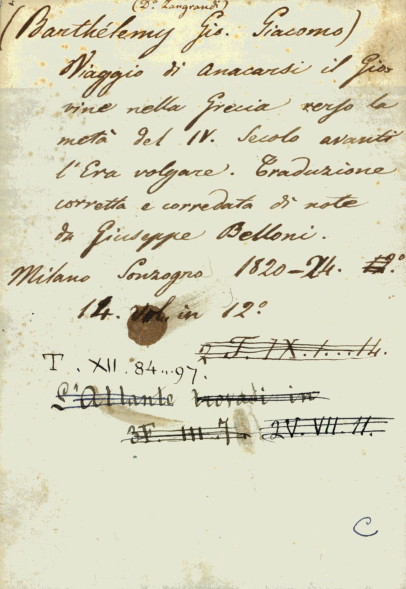 (D.° Zangrandi)
(Barthélemy Gio. Giacomo)
Viaggio di Anacarsi il Gio-
vine nella Grecia verso la
metà del IV. Secolo avanti
l'Era volgare. Traduzione
corretta e corredata di note
da Giuseppe Belloni.
Milano Sonzogno 1820-24.
14. Vol. in 12°
T. IX. 1...14.
T. XII. 84...97.
L'Atlante trovasi in
3F. III. 7. 2V. VII. 11.
C